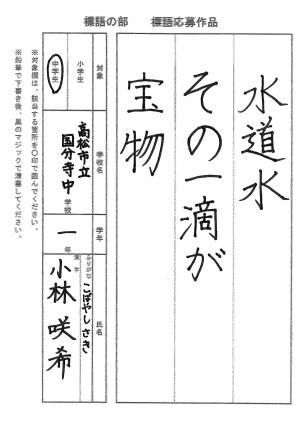 標語の部　標語応募作品
水道水
その一滴が
宝物
対象
小学生
中学生
学校名
高松市立
国分寺中
学校
学年
一
年
氏名
ふりがな
こばやし さき
漢字
小林 咲希
※対象欄は、該当する箇所を〇印で囲んでください。
※鉛筆で下書き後、黒のマジックで清書してください。